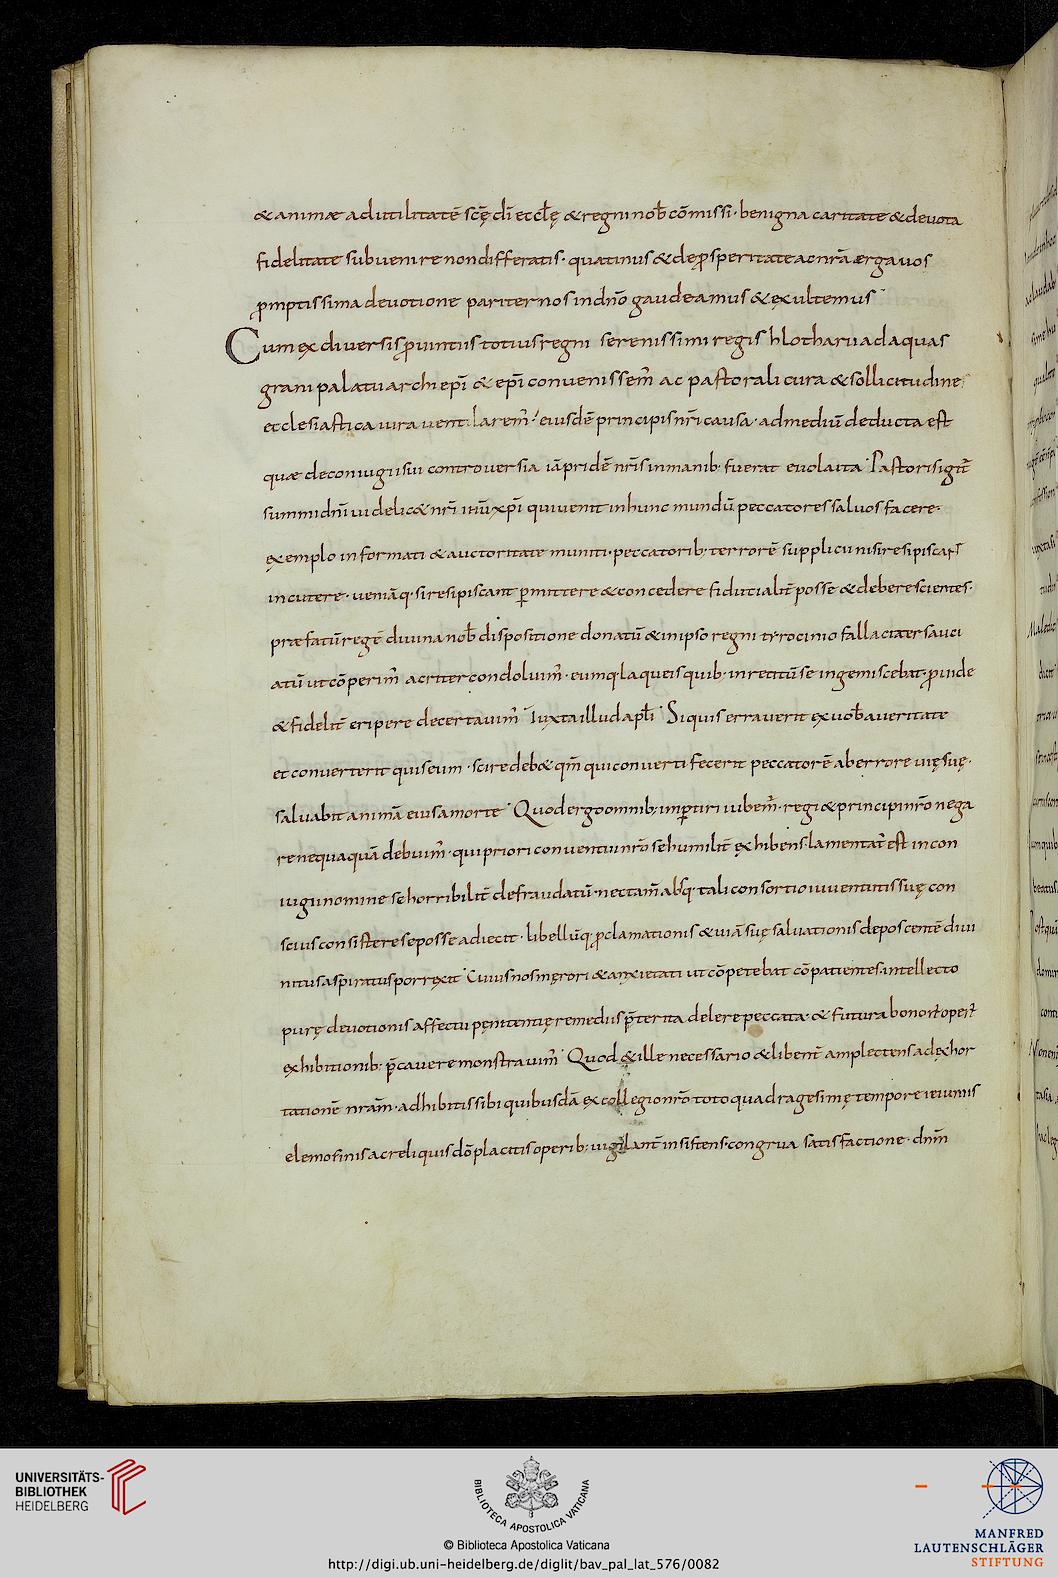 & animæ ad utilitatē scę̄ dī eccłę & regni nob̄ cōmissi· benigna caritate & devota
fidelitate subvenire non differatis· quatinus & de ꝓsperitate ac nr̄a erga uos
ꝓmptissima devotione pariter nos in dn̄o gaudeamus & exultemus
Cum ex diversis ꝓvintiis totius regni serenissimi regis hlotharii ad aquas
grani palatii archi epī & epī convenissem̄ ac pastorali cura & sollicitudine
ecclesiastica iura uentilarem̄· eiusdē principis nr̄i causa· ad mediū deducta est
quæ de coniugii sui controversia iā pridē nr̄is in manib· fuerat evoluta· Pastoris igit̄
summi dn̄i uidelic& nr̄i ihū xp̄i qui venit in hunc mundū peccatores salvos facere·
exemplo informati & auctoritate muniti· peccatorib; terrorē supplicii nisi resipiscant
incutere· ueniāq· si resipiscant ꝑmittere & concedere fiducialit̄ posse & debere scientes·
præfatū regē divina nob̄ dispositione donatū & in ipso regni tyrocinio fallaciter sauci
atū ut cōperim̄ acriter condoluim̄· eumq· laqueis quib· inretitū se ingemiscebat· ꝓuide
& fidelit̄ eripere decertavim̄ Iuxta illud apłi Si quis erraverit ex uob̄ a veritate
et converterit quis eum· scire deb& qm̄ qui converti fecerit peccatorē ab errore uię suę·
salvabit animā eius a morte Quod ergo omnib; inꝑtiri iubem̄· regi & principi nr̄o nega
re nequaquā debuim̄· qui priori conventui nr̄o se humilit̄ exhibens· lamentat̄ est in con
iugii nomine se horribilit̄ defraudatū· nec tam̄ absq· tali consortio iuventutis suę con
scius consistere se posse adiecit· libellūq· ꝓclamationis & uiā suę salvationis deposcentē divi
nitus aspiratus porrexit Cuius nos męrori & anxietati ut cōpetebat cōpatientes intellecto
purę devotionis affectu pęnitentię remediis p̄terita delere peccata· & futura bonor̄ oper̄
exhibitionib; p̄cavere monstravim̄ Quod & ille necessario & libent̄ amplectens ad exhor
tationē nr̄am· adhibitis sibi quibusdā ex collegio nr̄o toto quadragesimę tempore ieiuniis
elemosinis ac reliquis dō placitis operib; uigilant̄ insistens· congrua satisfactione· dn̄m
UNIVERSITÄTS-
BIBLIOTHEK
HEIDELBERG
BIBLIOTECA APOSTOLICA VATICANA
© Biblioteca Apostolica Vaticana
http://digi.ub.uni-heidelberg.de/diglit/bav_pal_lat_576/0082
MANFRED
LAUTENSCHLÄGER
STIFTUNG